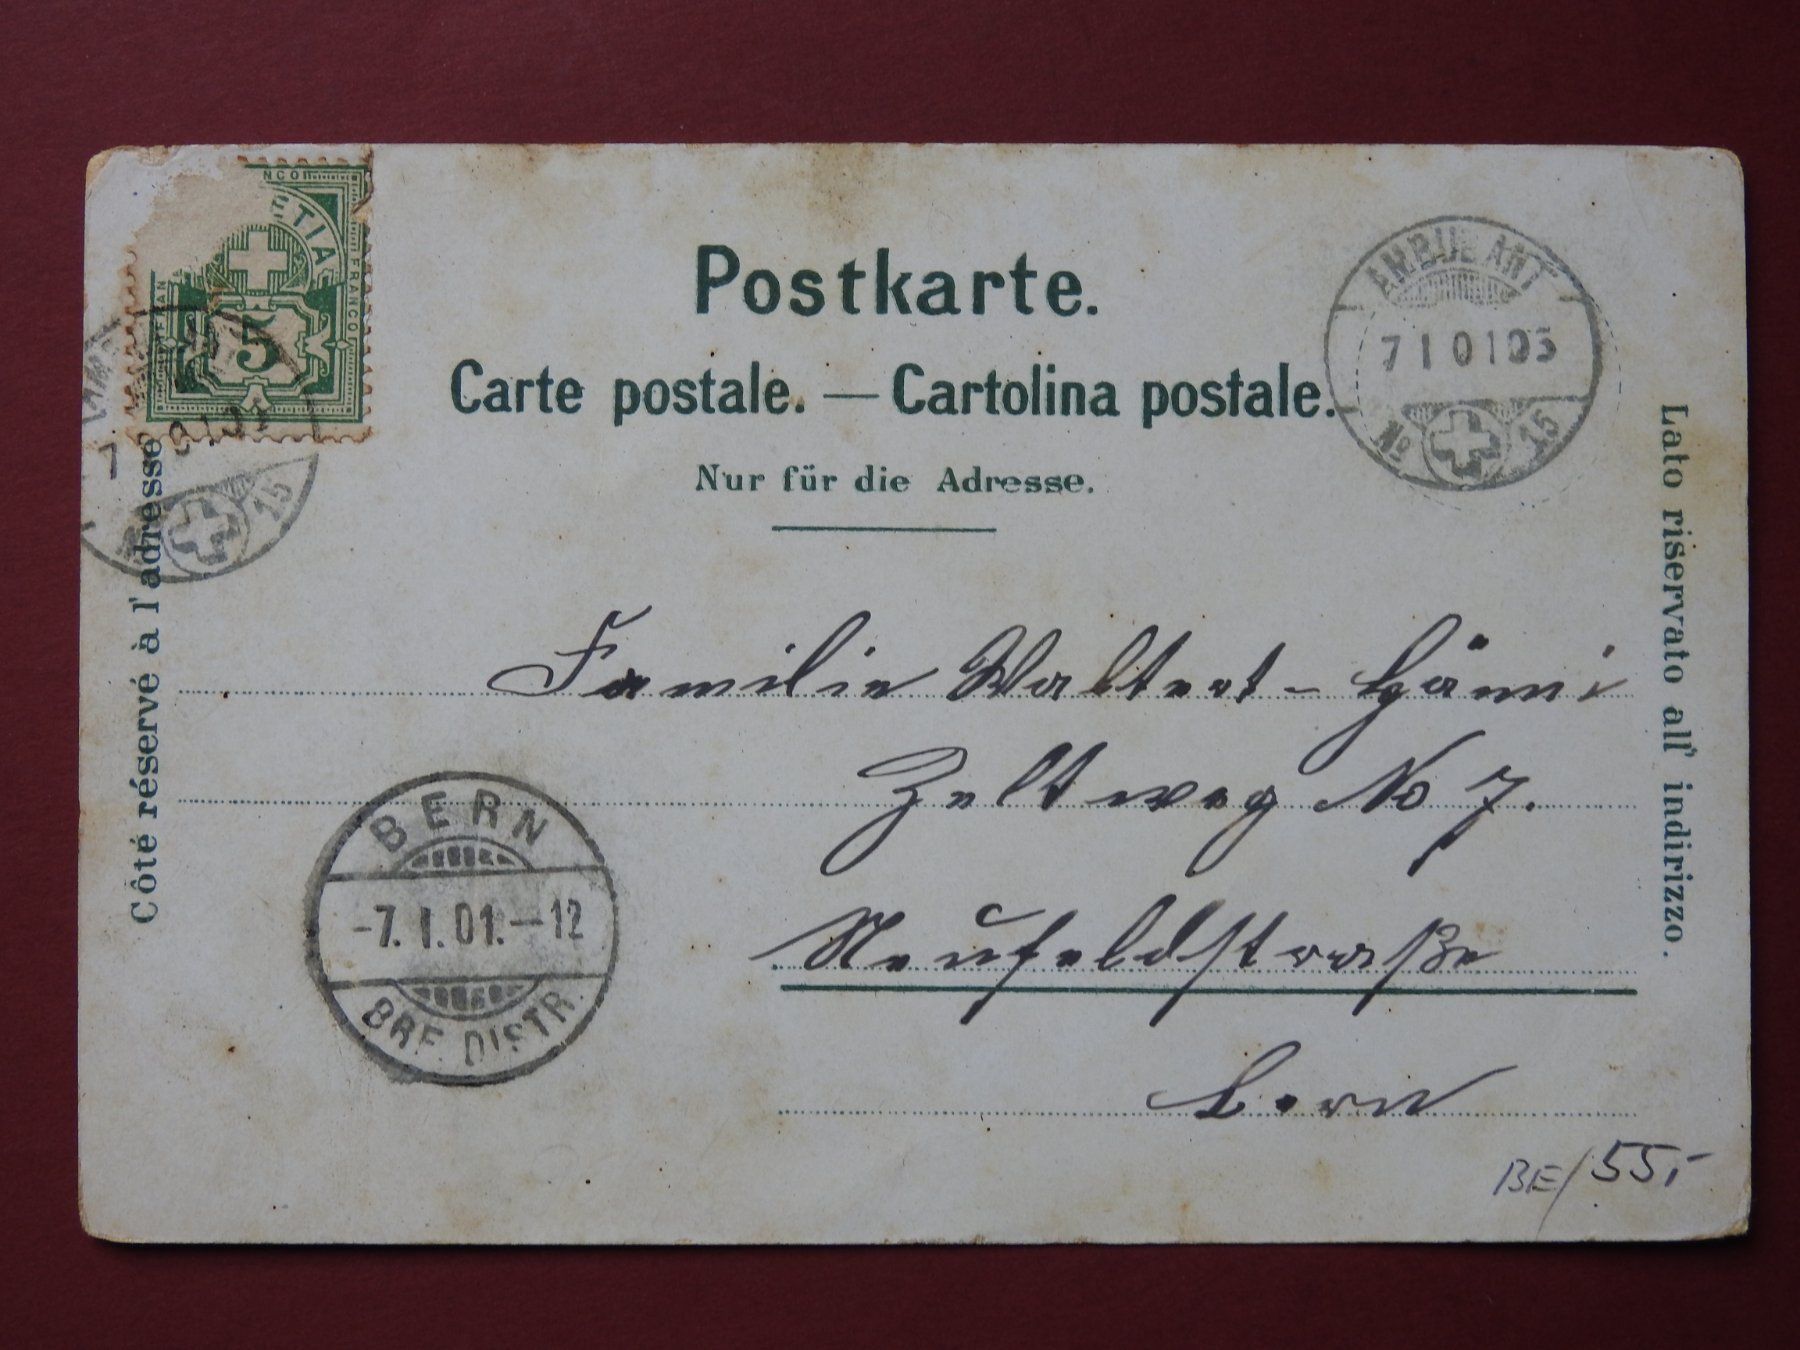 NCO
TIA
FRANCO
FRAN
5
15
Postkarte.
Carte postale. — Cartolina postale.
Nur für die Adresse.
AMBULANT
7 I 01 05
No 15
Côté réservé à l'adresse
Lato riservato all' indirizzo.
Familie Waltert - Hänni
Zeltweg No 7.
Neufeldstraße
Bern
BERN
-7. I. 01. - 12
BRF. DISTR.
BE/55,-